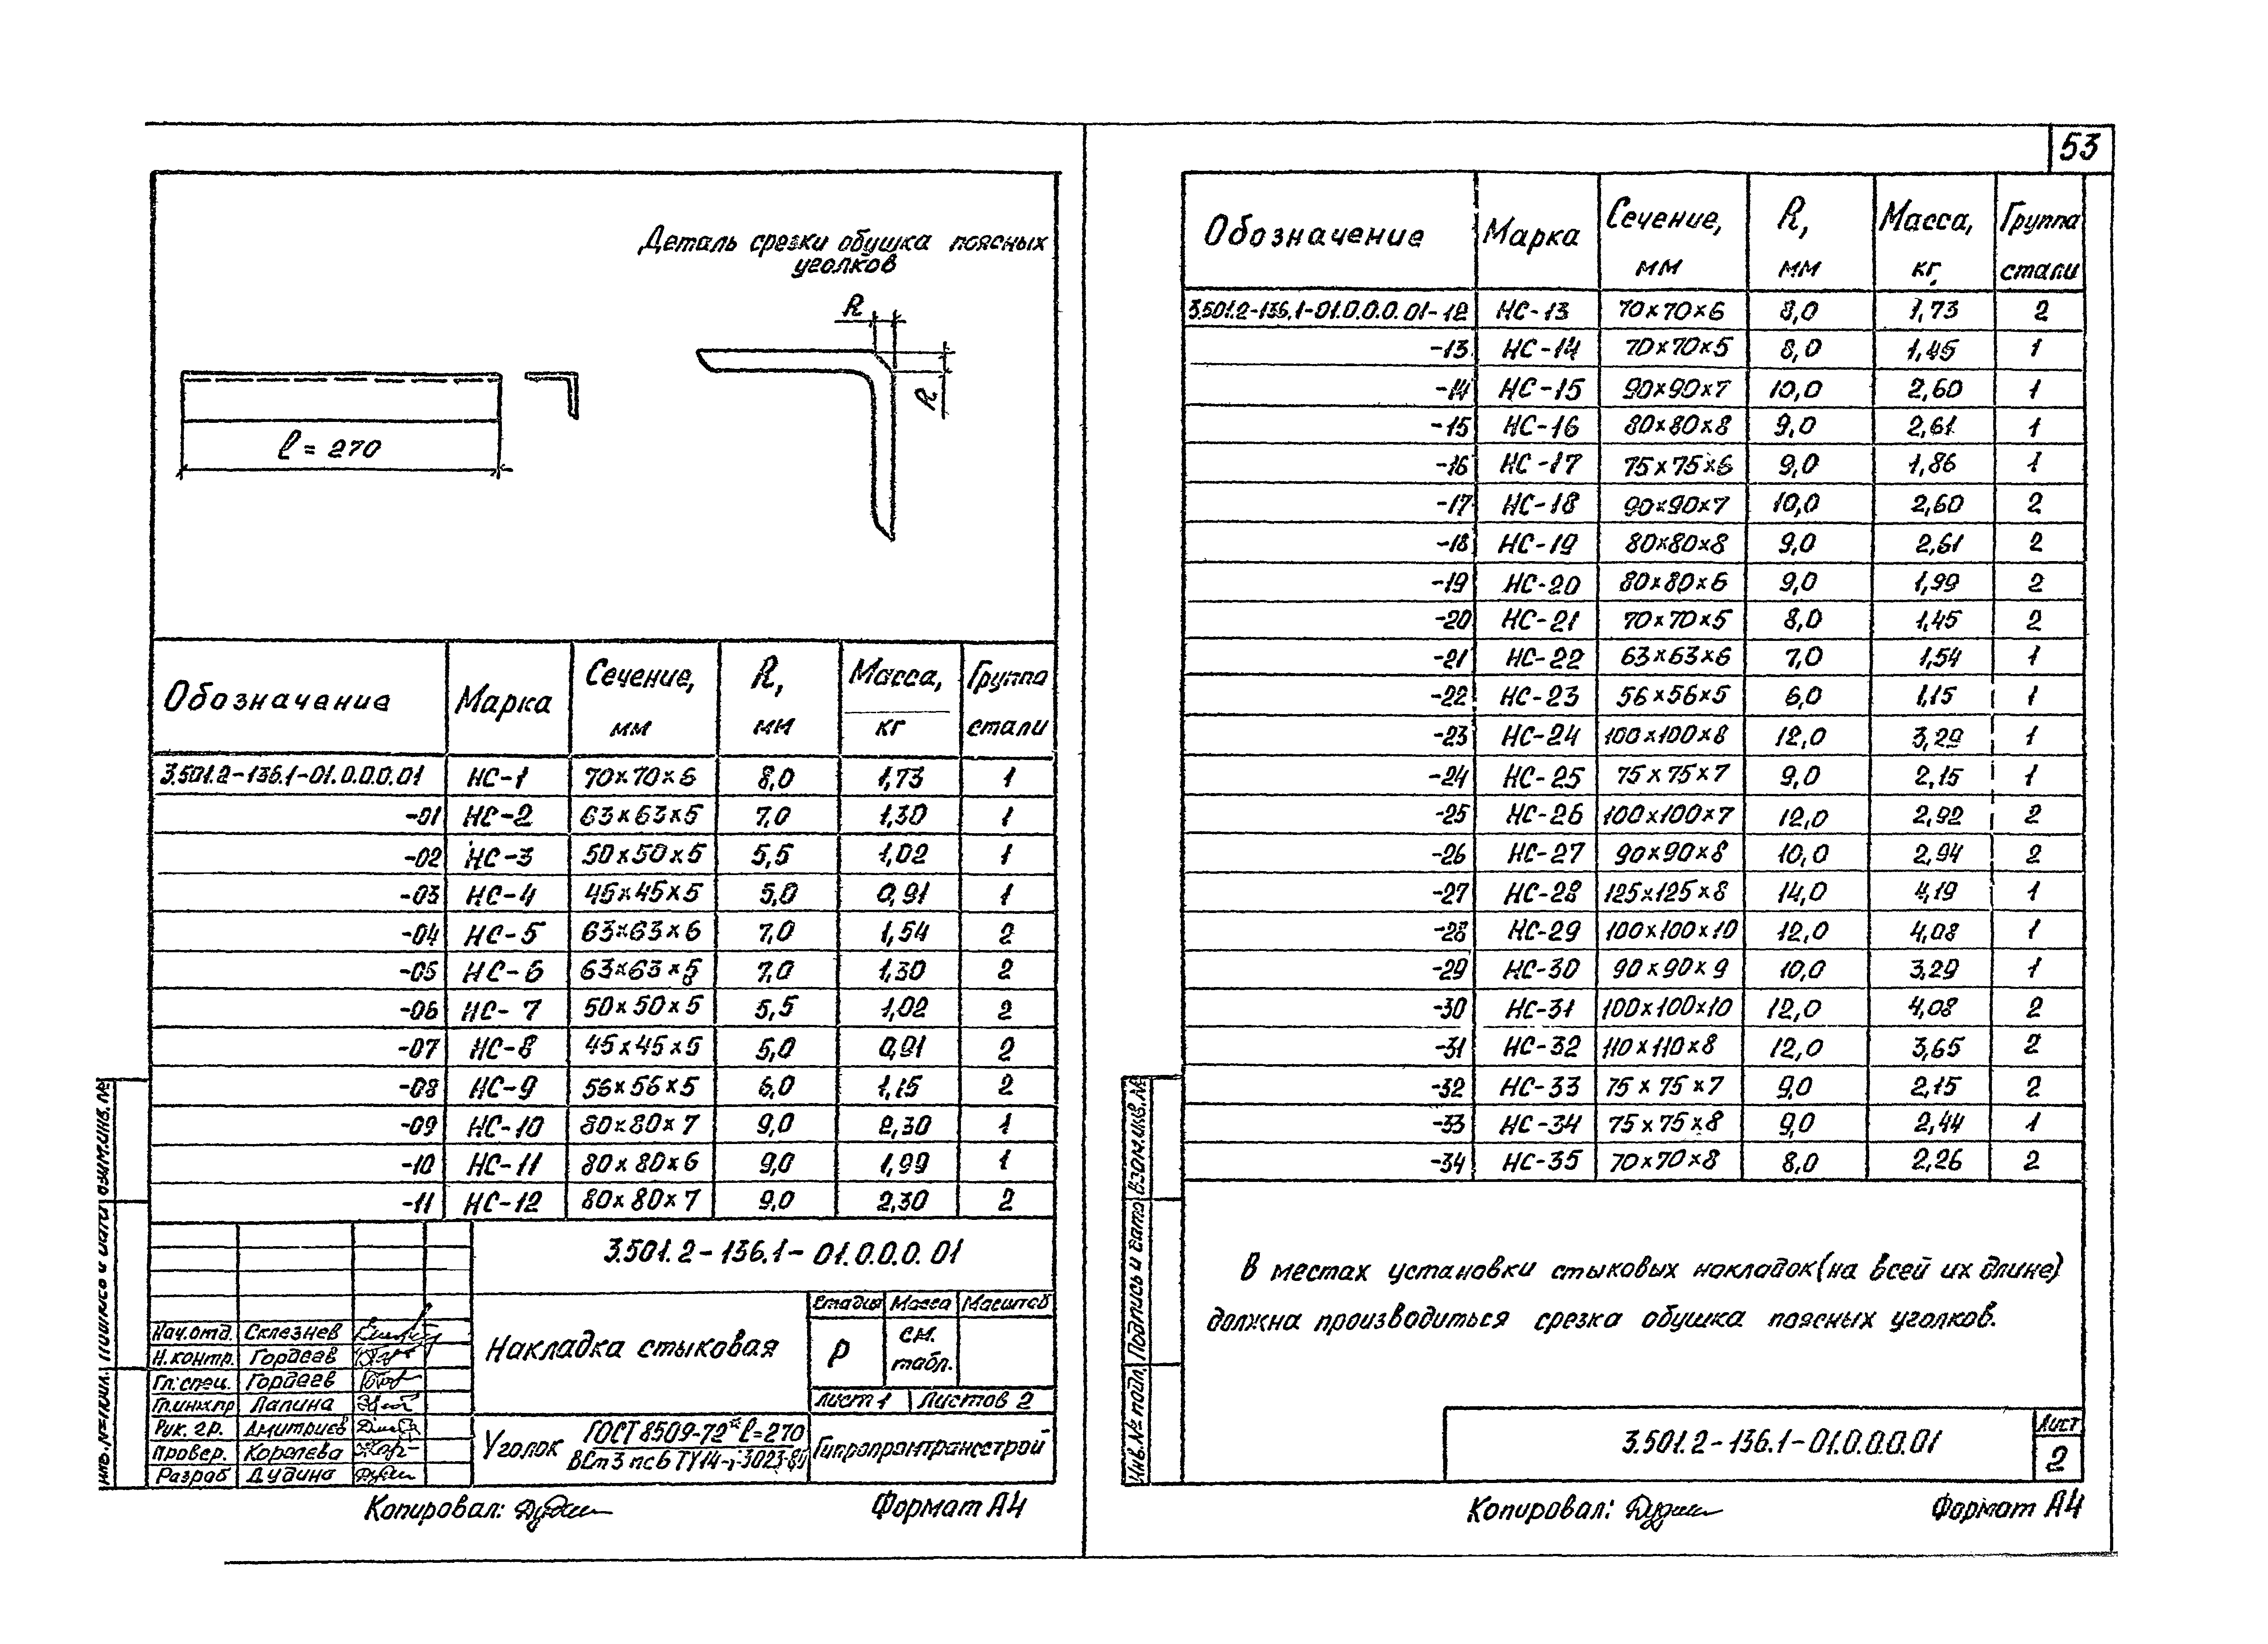 Деталь срезки обушка поясных
уголков
R
R
ℓ = 270
Обозначение Марка Сечение, мм R, мм Масса, кг Группа стали
3.501.2-136.1-01.0.0.0.01 НС-1 70×70×6 8,0 1,73 1
-01 НС-2 63×63×5 7,0 1,30 1
-02 НС-3 50×50×5 5,5 1,02 1
-03 НС-4 45×45×5 5,0 0,91 1
-04 НС-5 63×63×6 7,0 1,54 2
-05 НС-6 63×63×5 7,0 1,30 2
-06 НС-7 50×50×5 5,5 1,02 2
-07 НС-8 45×45×5 5,0 0,91 2
-08 НС-9 56×56×5 6,0 1,15 2
-09 НС-10 80×80×7 9,0 2,30 1
-10 НС-11 80×80×6 9,0 1,99 1
-11 НС-12 80×80×7 9,0 2,30 2
3.501.2-136.1-01.0.0.0.01
Накладка стыковая
Стадия Масса Масштаб
Р см. табл.
Лист 1 Листов 2
Уголок ГОСТ 8509-72* ℓ=270
ВСт3пс6 ТУ14-1-3023-80
Гипропромтрансстрой
Нач.отд. Селезнев
Н.контр. Гордеев
Гл.спец. Гордеев
Гл.инж.пр Лапина
Рук. гр. Дмитриев
Провер. Королева
Разраб Дудина
Инв.№ подл. Подпись и дата Взам.инв.№
Копировал: Формат А4
53
Обозначение Марка Сечение, мм R, мм Масса, кг Группа стали
3.501.2-136.1-01.0.0.0.01-12 НС-13 70×70×6 8,0 1,73 2
-13 НС-14 70×70×5 8,0 1,45 1
-14 НС-15 90×90×7 10,0 2,60 1
-15 НС-16 80×80×8 9,0 2,61 1
-16 НС-17 75×75×6 9,0 1,86 1
-17 НС-18 90×90×7 10,0 2,60 2
-18 НС-19 80×80×8 9,0 2,61 2
-19 НС-20 80×80×6 9,0 1,99 2
-20 НС-21 70×70×5 8,0 1,45 2
-21 НС-22 63×63×6 7,0 1,54 1
-22 НС-23 56×56×5 6,0 1,15 1
-23 НС-24 100×100×8 12,0 3,29 1
-24 НС-25 75×75×7 9,0 2,15 1
-25 НС-26 100×100×7 12,0 2,92 2
-26 НС-27 90×90×8 10,0 2,94 2
-27 НС-28 125×125×8 14,0 4,19 1
-28 НС-29 100×100×10 12,0 4,08 1
-29 НС-30 90×90×9 10,0 3,29 1
-30 НС-31 100×100×10 12,0 4,08 2
-31 НС-32 110×110×8 12,0 3,65 2
-32 НС-33 75×75×7 9,0 2,15 2
-33 НС-34 75×75×8 9,0 2,44 1
-34 НС-35 70×70×8 8,0 2,26 2
В местах установки стыковых накладок (на всей их длине)
должна производиться срезка обушка поясных уголков.
3.501.2-136.1-01.0.0.0.01
Лист
2
Инв.№ подл. Подпись и дата Взам.инв.№
Копировал: Формат А4